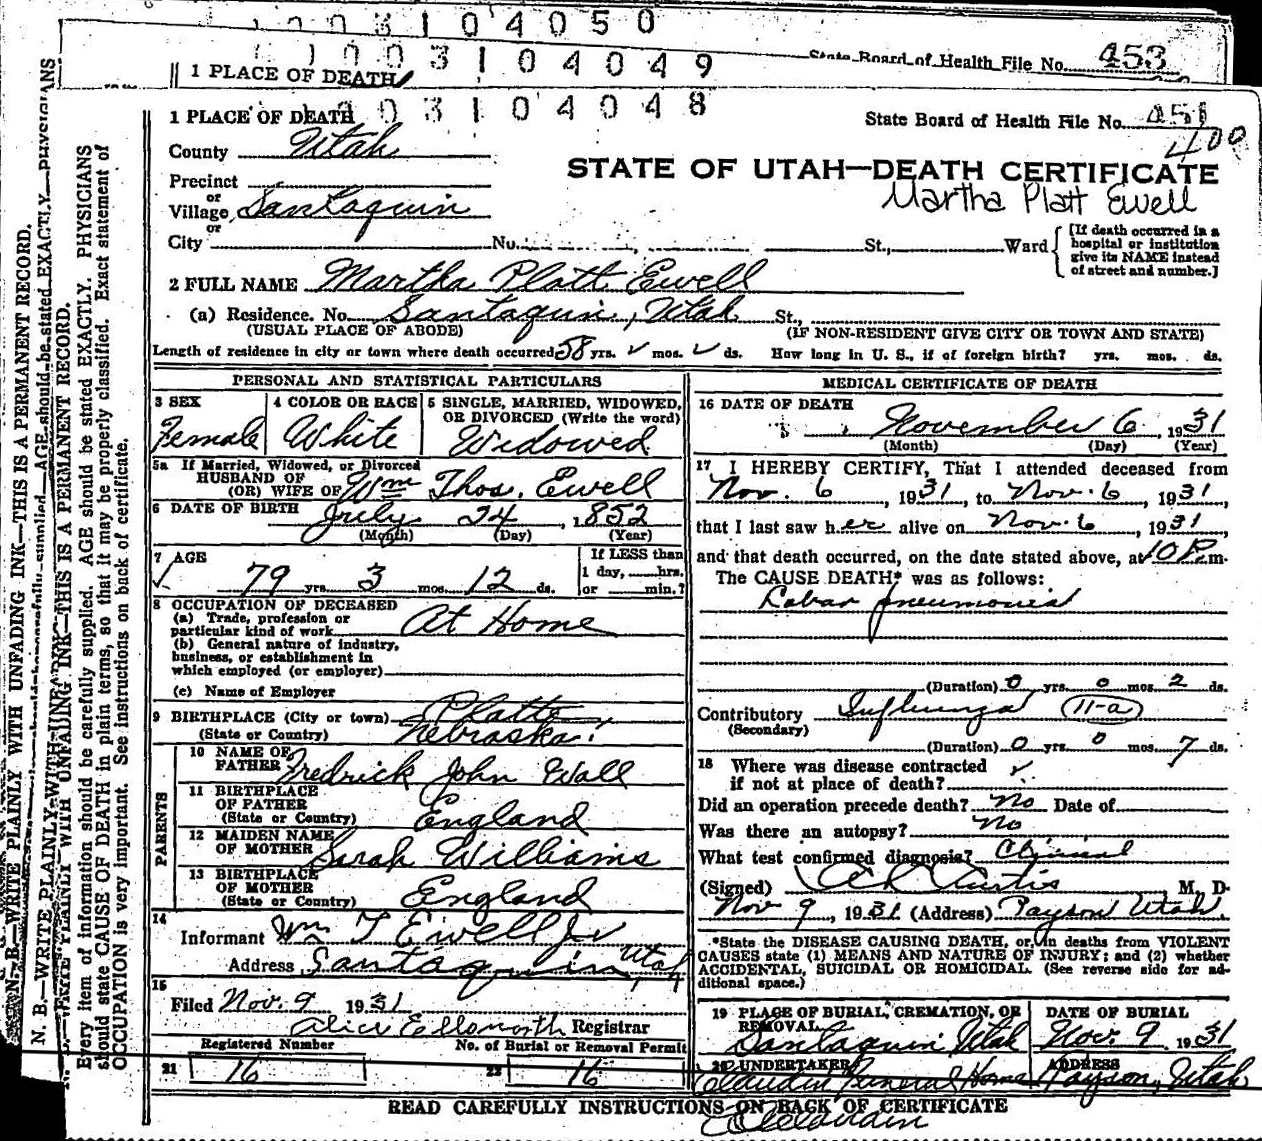 1003104050
1003104049
State Board of Health File No. 453
1 PLACE OF DEATH
1003104048
1 PLACE OF DEATH
State Board of Health File No. 451
400
County Utah
STATE OF UTAH—DEATH CERTIFICATE
Martha Platt Ewell
Precinct
or
Village Santaquin
or
City No. St., Ward
[If death occurred in a hospital or institution give its NAME instead of street and number.]
2 FULL NAME Martha Platt Ewell
(a) Residence. No. Santaquin, Utah St.,
(USUAL PLACE OF ABODE) (IF NON-RESIDENT GIVE CITY OR TOWN AND STATE)
Length of residence in city or town where death occurred 58 yrs. ✓ mos. ✓ ds. How long in U. S., if of foreign birth? yrs. mos. ds.
PERSONAL AND STATISTICAL PARTICULARS
3 SEX Female
4 COLOR OR RACE White
5 SINGLE, MARRIED, WIDOWED, OR DIVORCED (Write the word)
Widowed
5a If Married, Widowed, or Divorced
HUSBAND OF
(OR) WIFE OF Wm Thos. Ewell
6 DATE OF BIRTH July 24, 1852
(Month) (Day) (Year)
7 AGE
79 yrs. 3 mos. 12 ds.
If LESS than
1 day, hrs.
or min.?
8 OCCUPATION OF DECEASED
(a) Trade, profession or
particular kind of work At Home
(b) General nature of industry,
business, or establishment in
which employed (or employer)
(c) Name of Employer
9 BIRTHPLACE (City or town) Platte
(State or Country) Nebraska
PARENTS
10 NAME OF
FATHER Fredrick John Wall
11 BIRTHPLACE
OF FATHER
(State or Country) England
12 MAIDEN NAME
OF MOTHER Sarah Williams
13 BIRTHPLACE
OF MOTHER
(State or Country) England
14
Informant Wm T Ewell Jr
Address Santaquin, Utah
15
Filed Nov. 9 1931
Alice Ellsworth Registrar
Registered Number No. of Burial or Removal Permit
21 16 22 16
MEDICAL CERTIFICATE OF DEATH
16 DATE OF DEATH
November 6, 1931
(Month) (Day) (Year)
17 I HEREBY CERTIFY, That I attended deceased from
Nov. 6, 1931, to Nov. 6, 1931,
that I last saw her alive on Nov. 6, 1931,
and that death occurred, on the date stated above, at 10 P. m.
The CAUSE DEATH* was as follows:
Lobar pneumonia
(Duration) 0 yrs. 0 mos. 2 ds.
Contributory Influenza 11-a
(Secondary)
(Duration) 0 yrs. 0 mos. 7 ds.
18 Where was disease contracted
if not at place of death? ✓
Did an operation precede death? no Date of
Was there an autopsy? no
What test confirmed diagnosis? Clinical
(Signed) Curtis, M. D.
Nov 9, 1931 (Address) Payson Utah.
*State the DISEASE CAUSING DEATH, or, in deaths from VIOLENT
CAUSES state (1) MEANS AND NATURE OF INJURY; and (2) whether
ACCIDENTAL, SUICIDAL OR HOMICIDAL. (See reverse side for ad-
ditional space.)
19 PLACE OF BURIAL, CREMATION, OR
REMOVAL
Santaquin Utah
DATE OF BURIAL
Nov. 9 1931
20 UNDERTAKER
Claudin Funeral Home
ADDRESS
Payson, Utah
READ CAREFULLY INSTRUCTIONS ON BACK OF CERTIFICATE
N. B.—WRITE PLAINLY WITH UNFADING INK—THIS IS A PERMANENT RECORD.
Every item of information should be carefully supplied. AGE should be stated EXACTLY. PHYSICIANS
should state CAUSE OF DEATH in plain terms, so that it may be properly classified. Exact statement of
OCCUPATION is very important. See instructions on back of certificate.